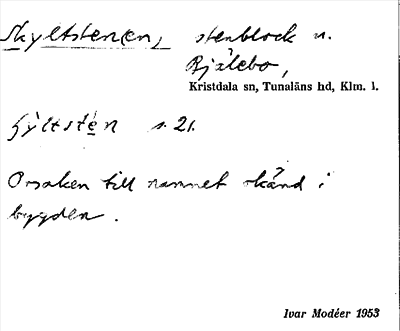 Skyltsten(en), stenblock n.
Bjälebo,
Kristdala sn, Tunaläns hd, Klm. l.
s. 21.
Orsaken till namnet okänd i
bygden.
Ivar Modéer 1953